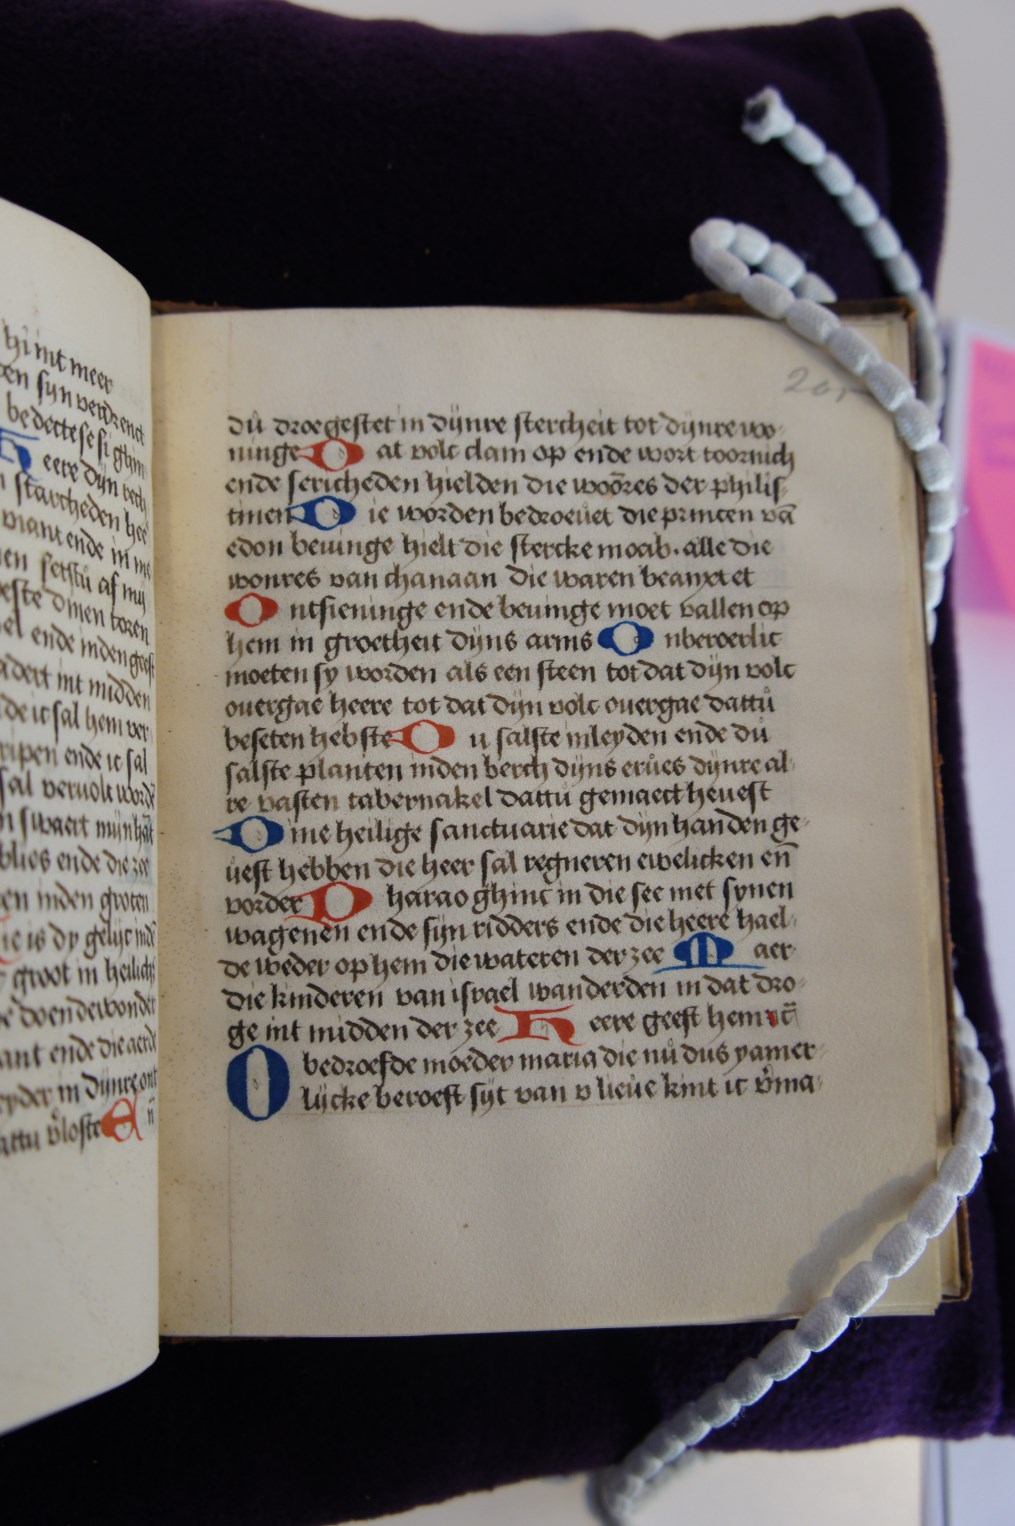 hi int meer
en syn verdrenct
bedectese si ghin
Heere dyn rech
starcheden hee
viant ende in me
en setstu af my
este dinen toren
el ende inden geest
adert int midden
de ic sal hem ver
ripen ende ic sal
sal vervolt worde
swaert mijn hāt
blies ende die zee
en inden groten
ie is dy gelijc inde
groot in heilich
e doende wonder
ant ende die aerde
eyder in dijnre ont
attu v̄loste En̄
20,
dů droegestet in dijnre stercheit tot dijnre wo-
ninge Dat volc clam op ende wort toornich
ende sericheden hielden die woōres der philis-
tinen Die worden bedroeuet die princen vā
edon beuinge hielt die stercke moab. alle die
wonres van chanaan die waren beanxtet
Ontsieninge ende beuinge moet vallen op
hem in groetheit dijns arms Onberoerlic
moeten sy worden als een steen tot dat dijn volc
ouergae heere tot dat dijn volc ouergae dattů
beseten hebste Du salste inleyden ende dů
salste planten inden berch dijns erůes dijnre al-
re vasten tabernakel dattů gemaect heuest
Dine heilige sanctuarie dat dijn handen ge-
uest hebben die heer sal regneren ewelicken en̄
vorder Pharao ghinc in die see met synen
wagenen ende sijn ridders ende die heere hael-
de weder op hem die wateren der zee Maer
die kinderen van israel wanderden in dat dro-
ge int midden der zee Heere geeft hem
O bedroefde moeder maria die nů dus yamer-
lijcke beroeft sijt van v lieue kint ic v̄ma-